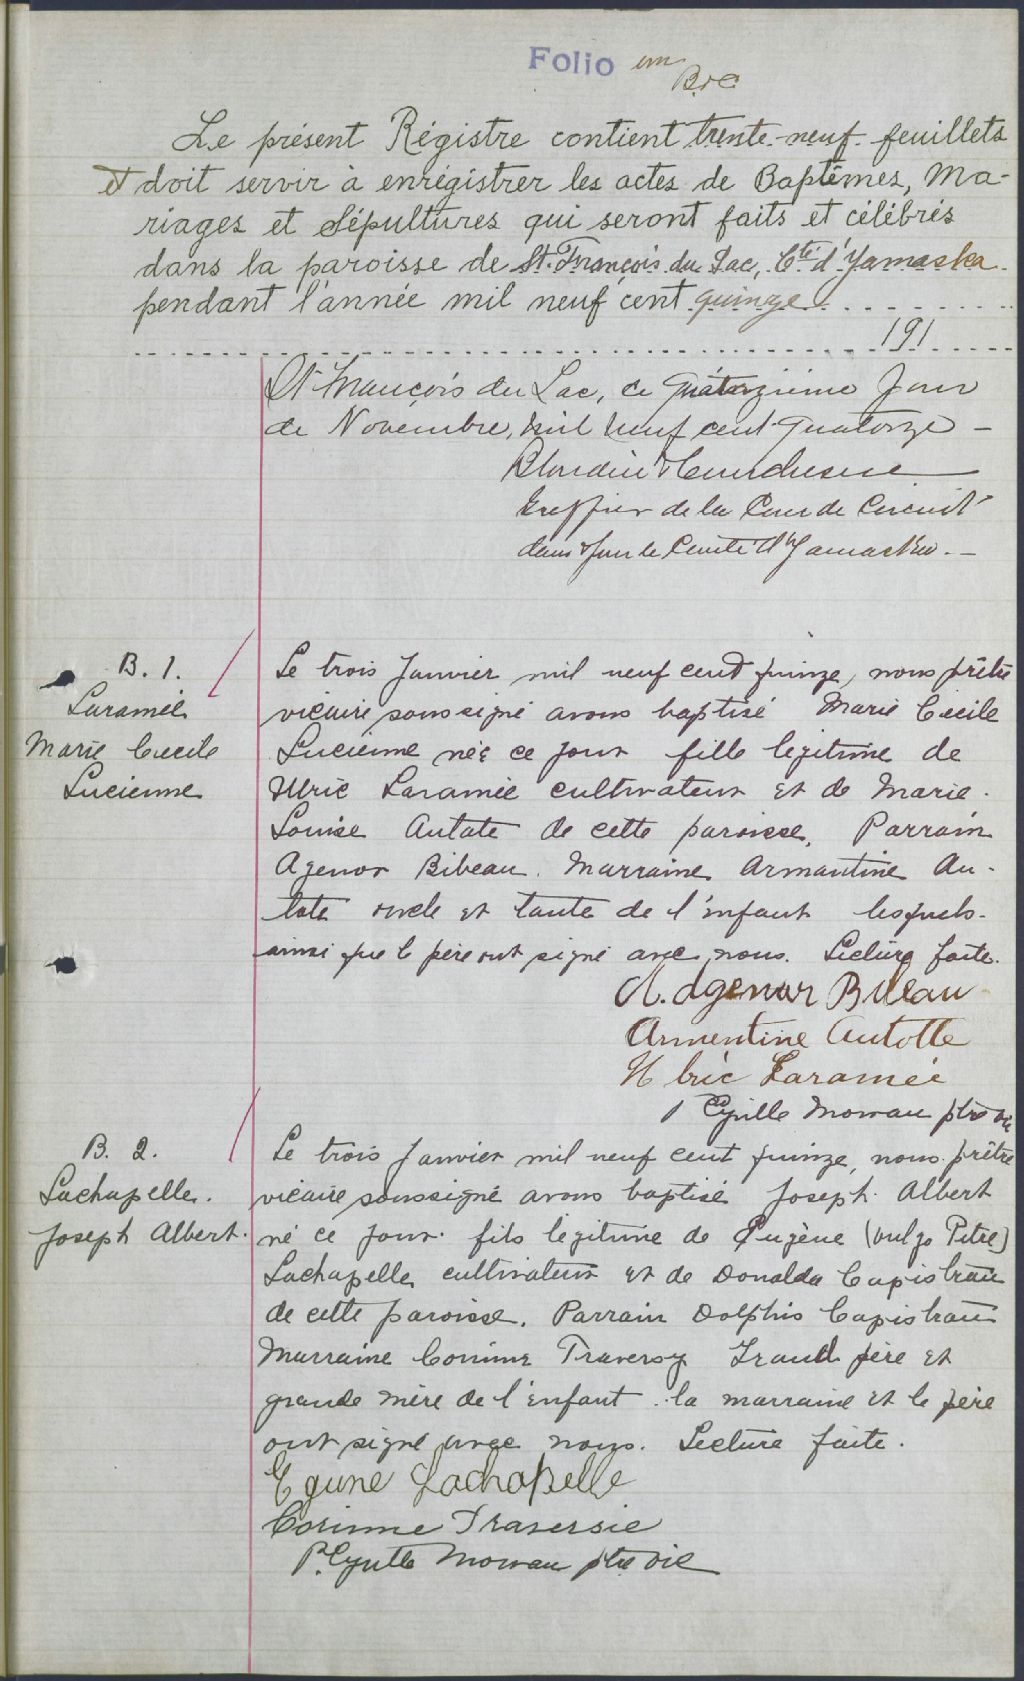 Folio un
B&C
Le présent Régistre contient trente-neuf feuillets
et doit servir à enrégistrer les actes de Baptêmes, Ma-
riages et Sépultures qui seront faits et célébrés
dans la paroisse de St. François du Lac, Cté d'Yamaska
pendant l'année mil neuf cent quinze
191
St François du Lac, ce Quatorzième Jour
de Novembre, mil neuf cent quatorze -
Blondin &
Greffier de la Cour de Circuit
dans & pour le Comté d'Yamaska. -
B. 1.
Laramée
Marie Cecile
Lucienne
Le trois Janvier mil neuf cent quinze, nous prêtre
vicaire soussigné avons baptisé Marie Cecile
Lucienne née ce jour fille legitime de
Ulric Laramée cultivateur et de Marie.
Louise Autate de cette paroisse. Parrain
Agenor Bibeau. Marraine Armantine Au-
tate oncle et tante de l'enfant lesquels.
ainsi que le père ont signé avec nous. Lecture faite.
A. Agenor Bibeau
Armentine Autotte
Ulric Laramée
P Cyrille Moreau ptre vic
B. 2.
Lachapelle.
Joseph Albert.
Le trois Janvier mil neuf cent quinze, nous prêtre
vicaire soussigné avons baptisé Joseph Albert
né ce jour. fils legitime de Eugène (vulgo Pitre)
Lachapelle cultivateur et de Donalda Capistran
de cette paroisse. Parrain Dolphis Capistran
Marraine Corinne Traversy Grand père et
grande mère de l'enfant. la marraine et le père
ont signé avec nous. Lecture faite.
Egune Lachapelle
Corinne Traversie
P. Cyrille Moreau ptre vic